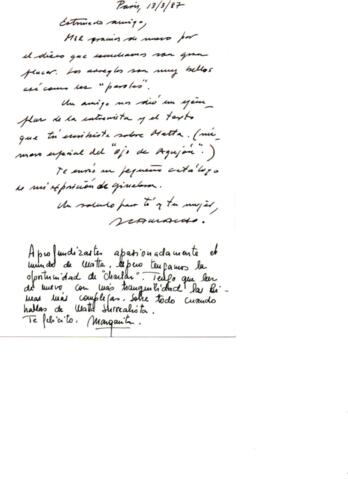 París, 13/3/87
Estimado amigo,
Mil gracias de nuevo por
el disco que escuchamos con gran
placer. Los arreglos son muy bellos
así como las "paroles".
Un amigo nos dió un ejem-
plar de la entrevista y el texto
que tú escribiste sobre Matta. (nú-
mero especial del "Ojo de Aguijón".)
Te envío un pequeño catálogo
de mi exposición de Ginebra.
Un saludo para tí y tu mujer,
Aprofundizastes apasionadamente el
mundo de Matta. Espero tengamos la
oportunidad de "charlar". Tengo que leer
de nuevo con más tranquilidad las
más complejas. Sobre todo cuando
hablas de Matta surrealista.
Te felicito. Margarita.